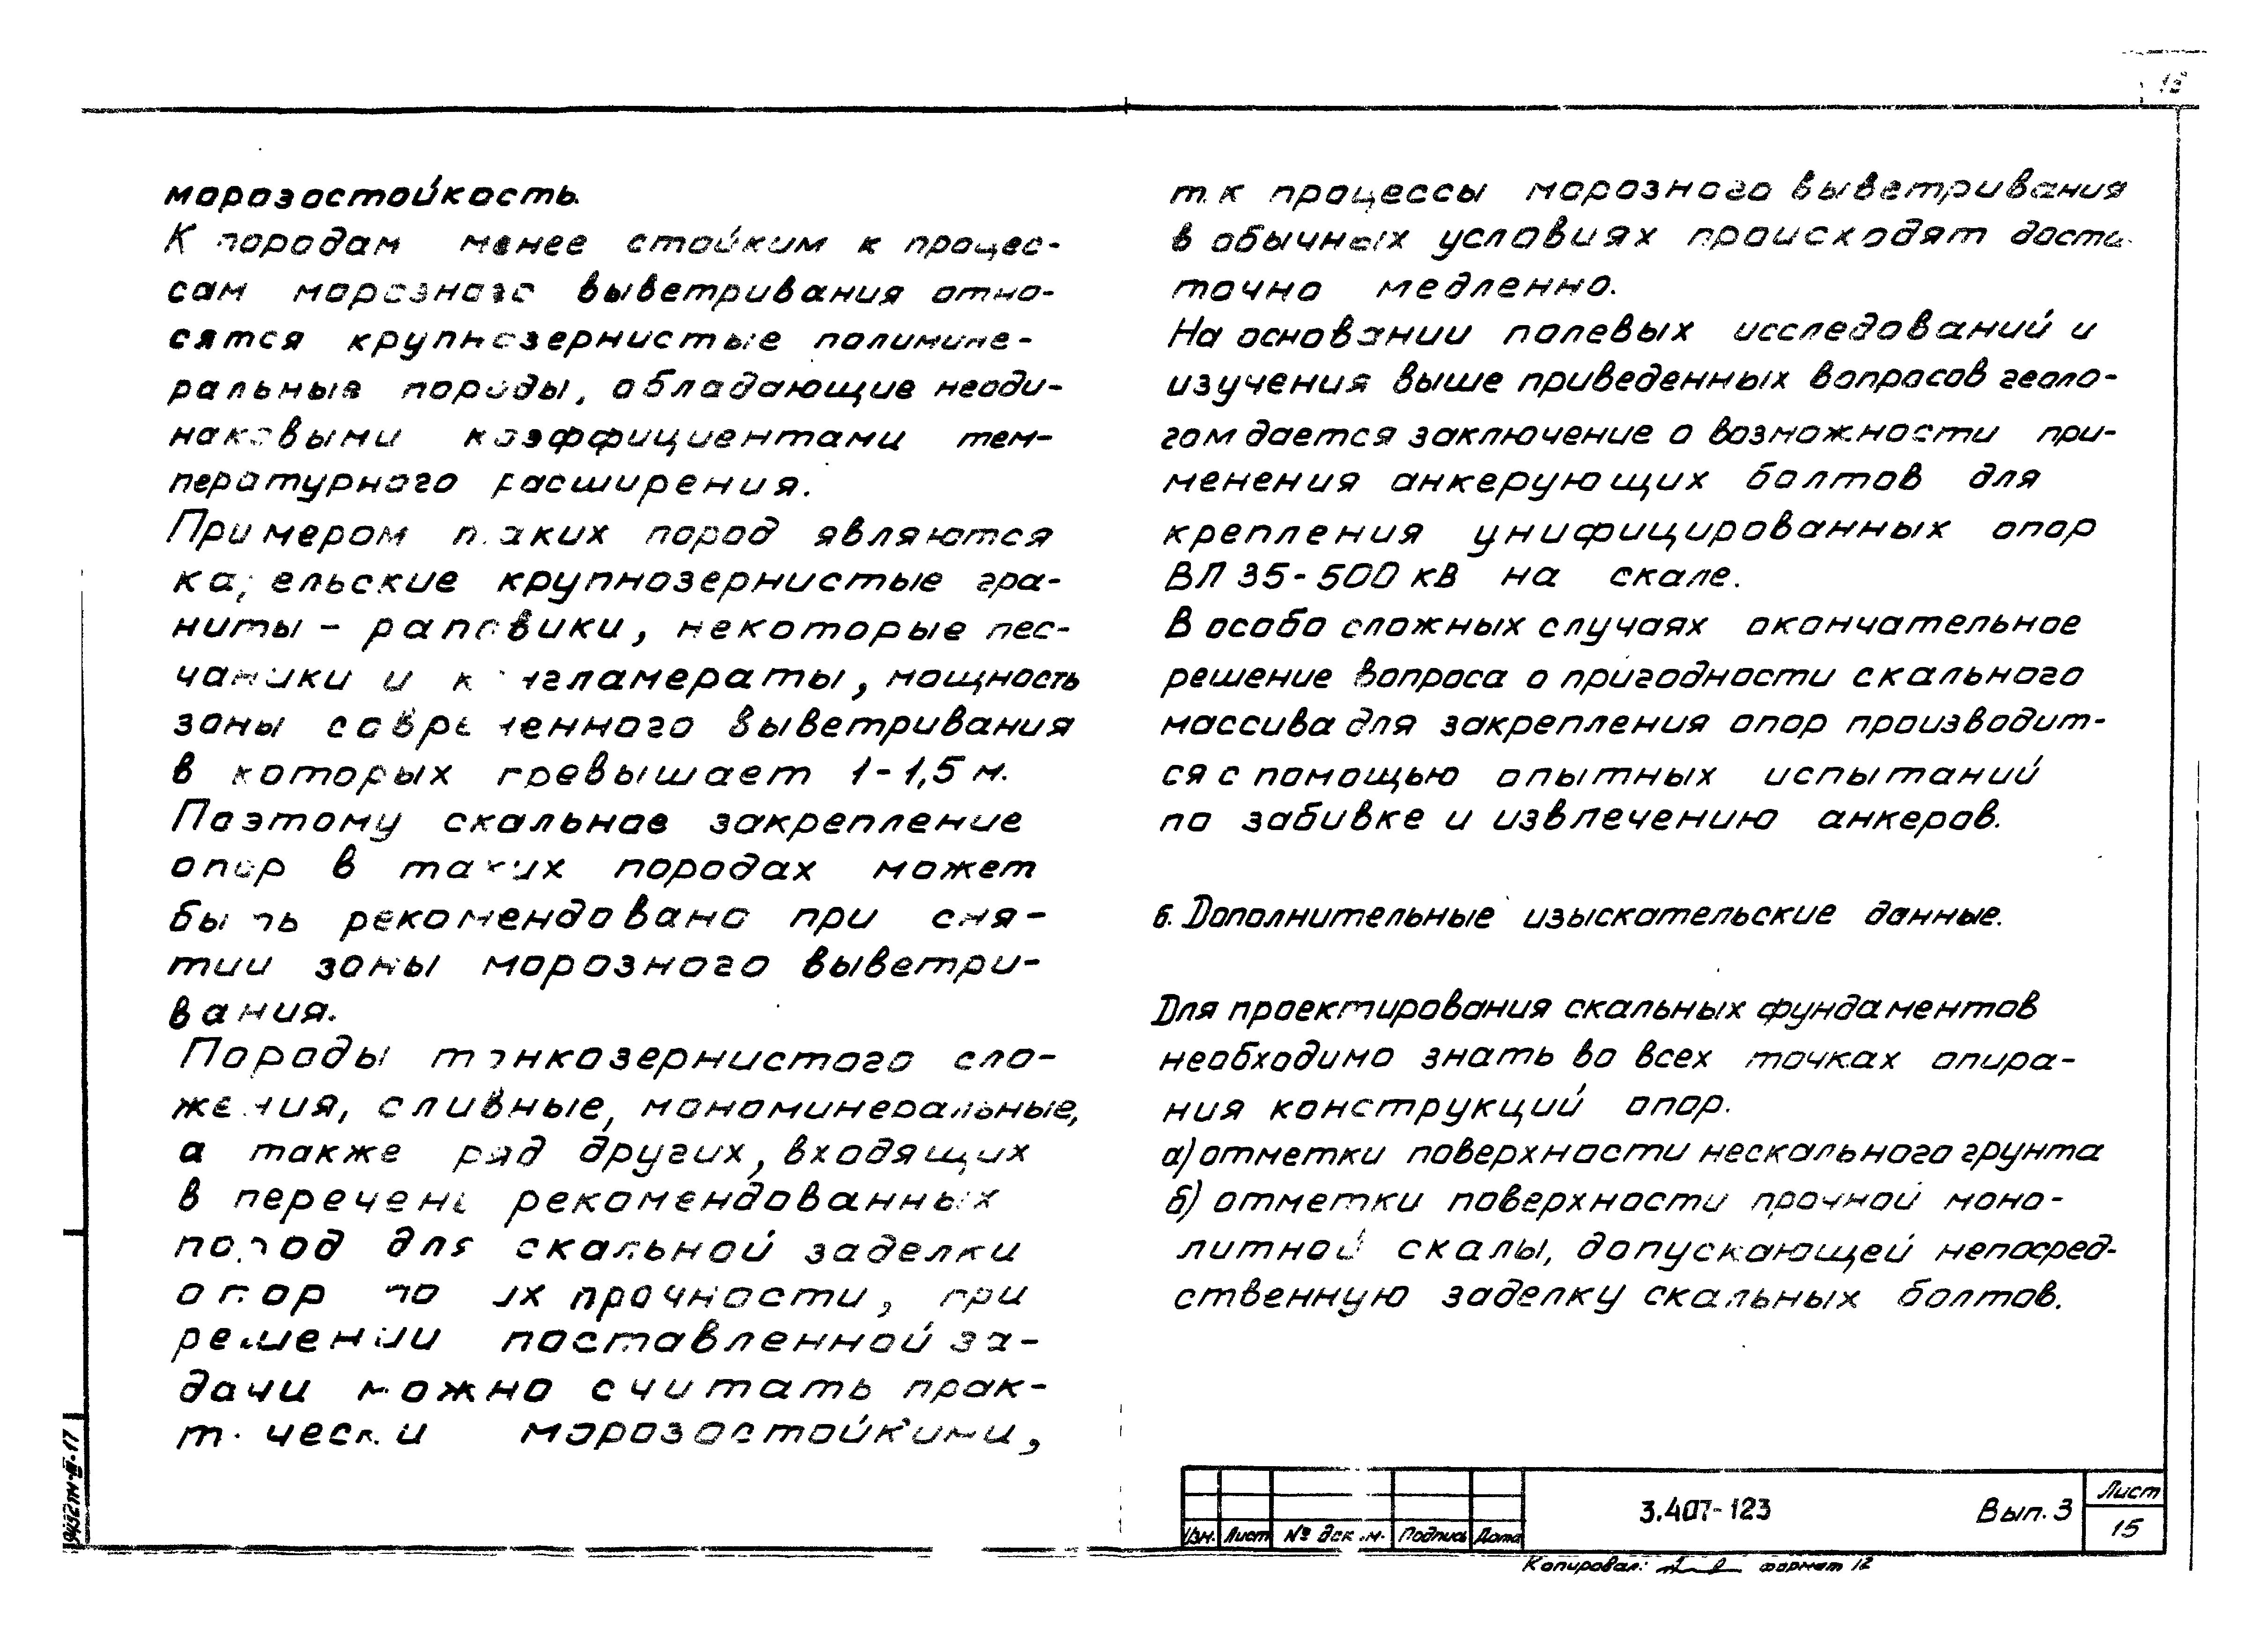 морозостойкость.
К породам менее стойким к процес-
сам морозного выветривания отно-
сятся крупнозернистые полимине-
ральные породы, обладающие неоди-
наковыми коэффициентами тем-
пературного расширения.
Примером таких пород являются
карельские крупнозернистые гра-
ниты - раповики, некоторые пес-
чаники и конгламераты, мощность
зоны современного выветривания
в которых превышает 1-1,5 м.
Поэтому скальное закрепление
опор в таких породах может
быть рекомендовано при сня-
тии зоны морозного выветри-
вания.
Породы тонкозернистого сло-
жения, сливные, мономинеральные,
а также ряд других, входящих
в перечень рекомендованных
пород для скальной заделки
опор по их прочности, при
решении поставленной за-
дачи можно считать прак-
тически морозостойкими,
т.к процессы морозного выветривания
в обычных условиях происходят доста-
точно медленно.
На основании полевых исследований и
изучения выше приведенных вопросов геоло-
гом дается заключение о возможности при-
менения анкерующих болтов для
крепления унифицированных опор
ВЛ 35-500 кВ на скале.
В особо сложных случаях окончательное
решение вопроса о пригодности скального
массива для закрепления опор производит-
ся с помощью опытных испытаний
по забивке и извлечению анкеров.
6. Дополнительные изыскательские данные.
Для проектирования скальных фундаментов
необходимо знать во всех точках опира-
ния конструкций опор.
а) отметки поверхности нескального грунта
б) отметки поверхности прочной моно-
литной скалы, допускающей непосред-
ственную заделку скальных болтов.
Изм. Лист № док.м. Подпись Дата
3.407-123 Вып. 3
Лист
15
Копировал: формат 12
9432тм-III-17